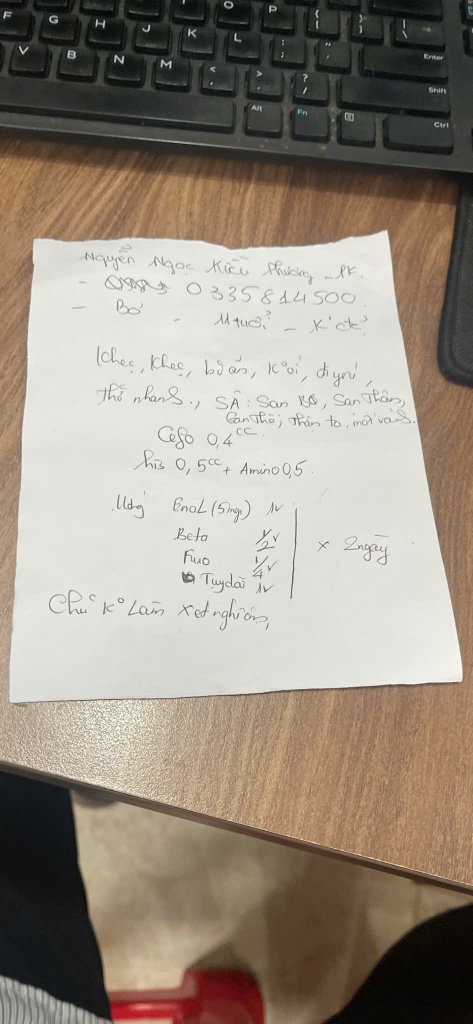 F G H J K L O P { [ } ] | \
: ; " '
Enter
V B N M < , > . ? /
Shift
Alt Fn Ctrl
Nguyễn Ngọc Kiều Phương _ PK.
- 0335814500
- Bo' - 11 tuổi - K° ck?
Khẹc, khẹc, bỏ ăn, K° ói, đi yếu,
thở nhanh., SÂ: Sạn BQ, Sạn Thận,
Gan Thô, Thận to, mới vài
Cefo 0,4cc
his 0,5cc + Amino 0,5
Uống Enal (5mg) 1v
Beta 1/2v
Furo 1/4v x 2 ngày
Tụy dài 1v
Chủ K° Làm xet nghiệm,